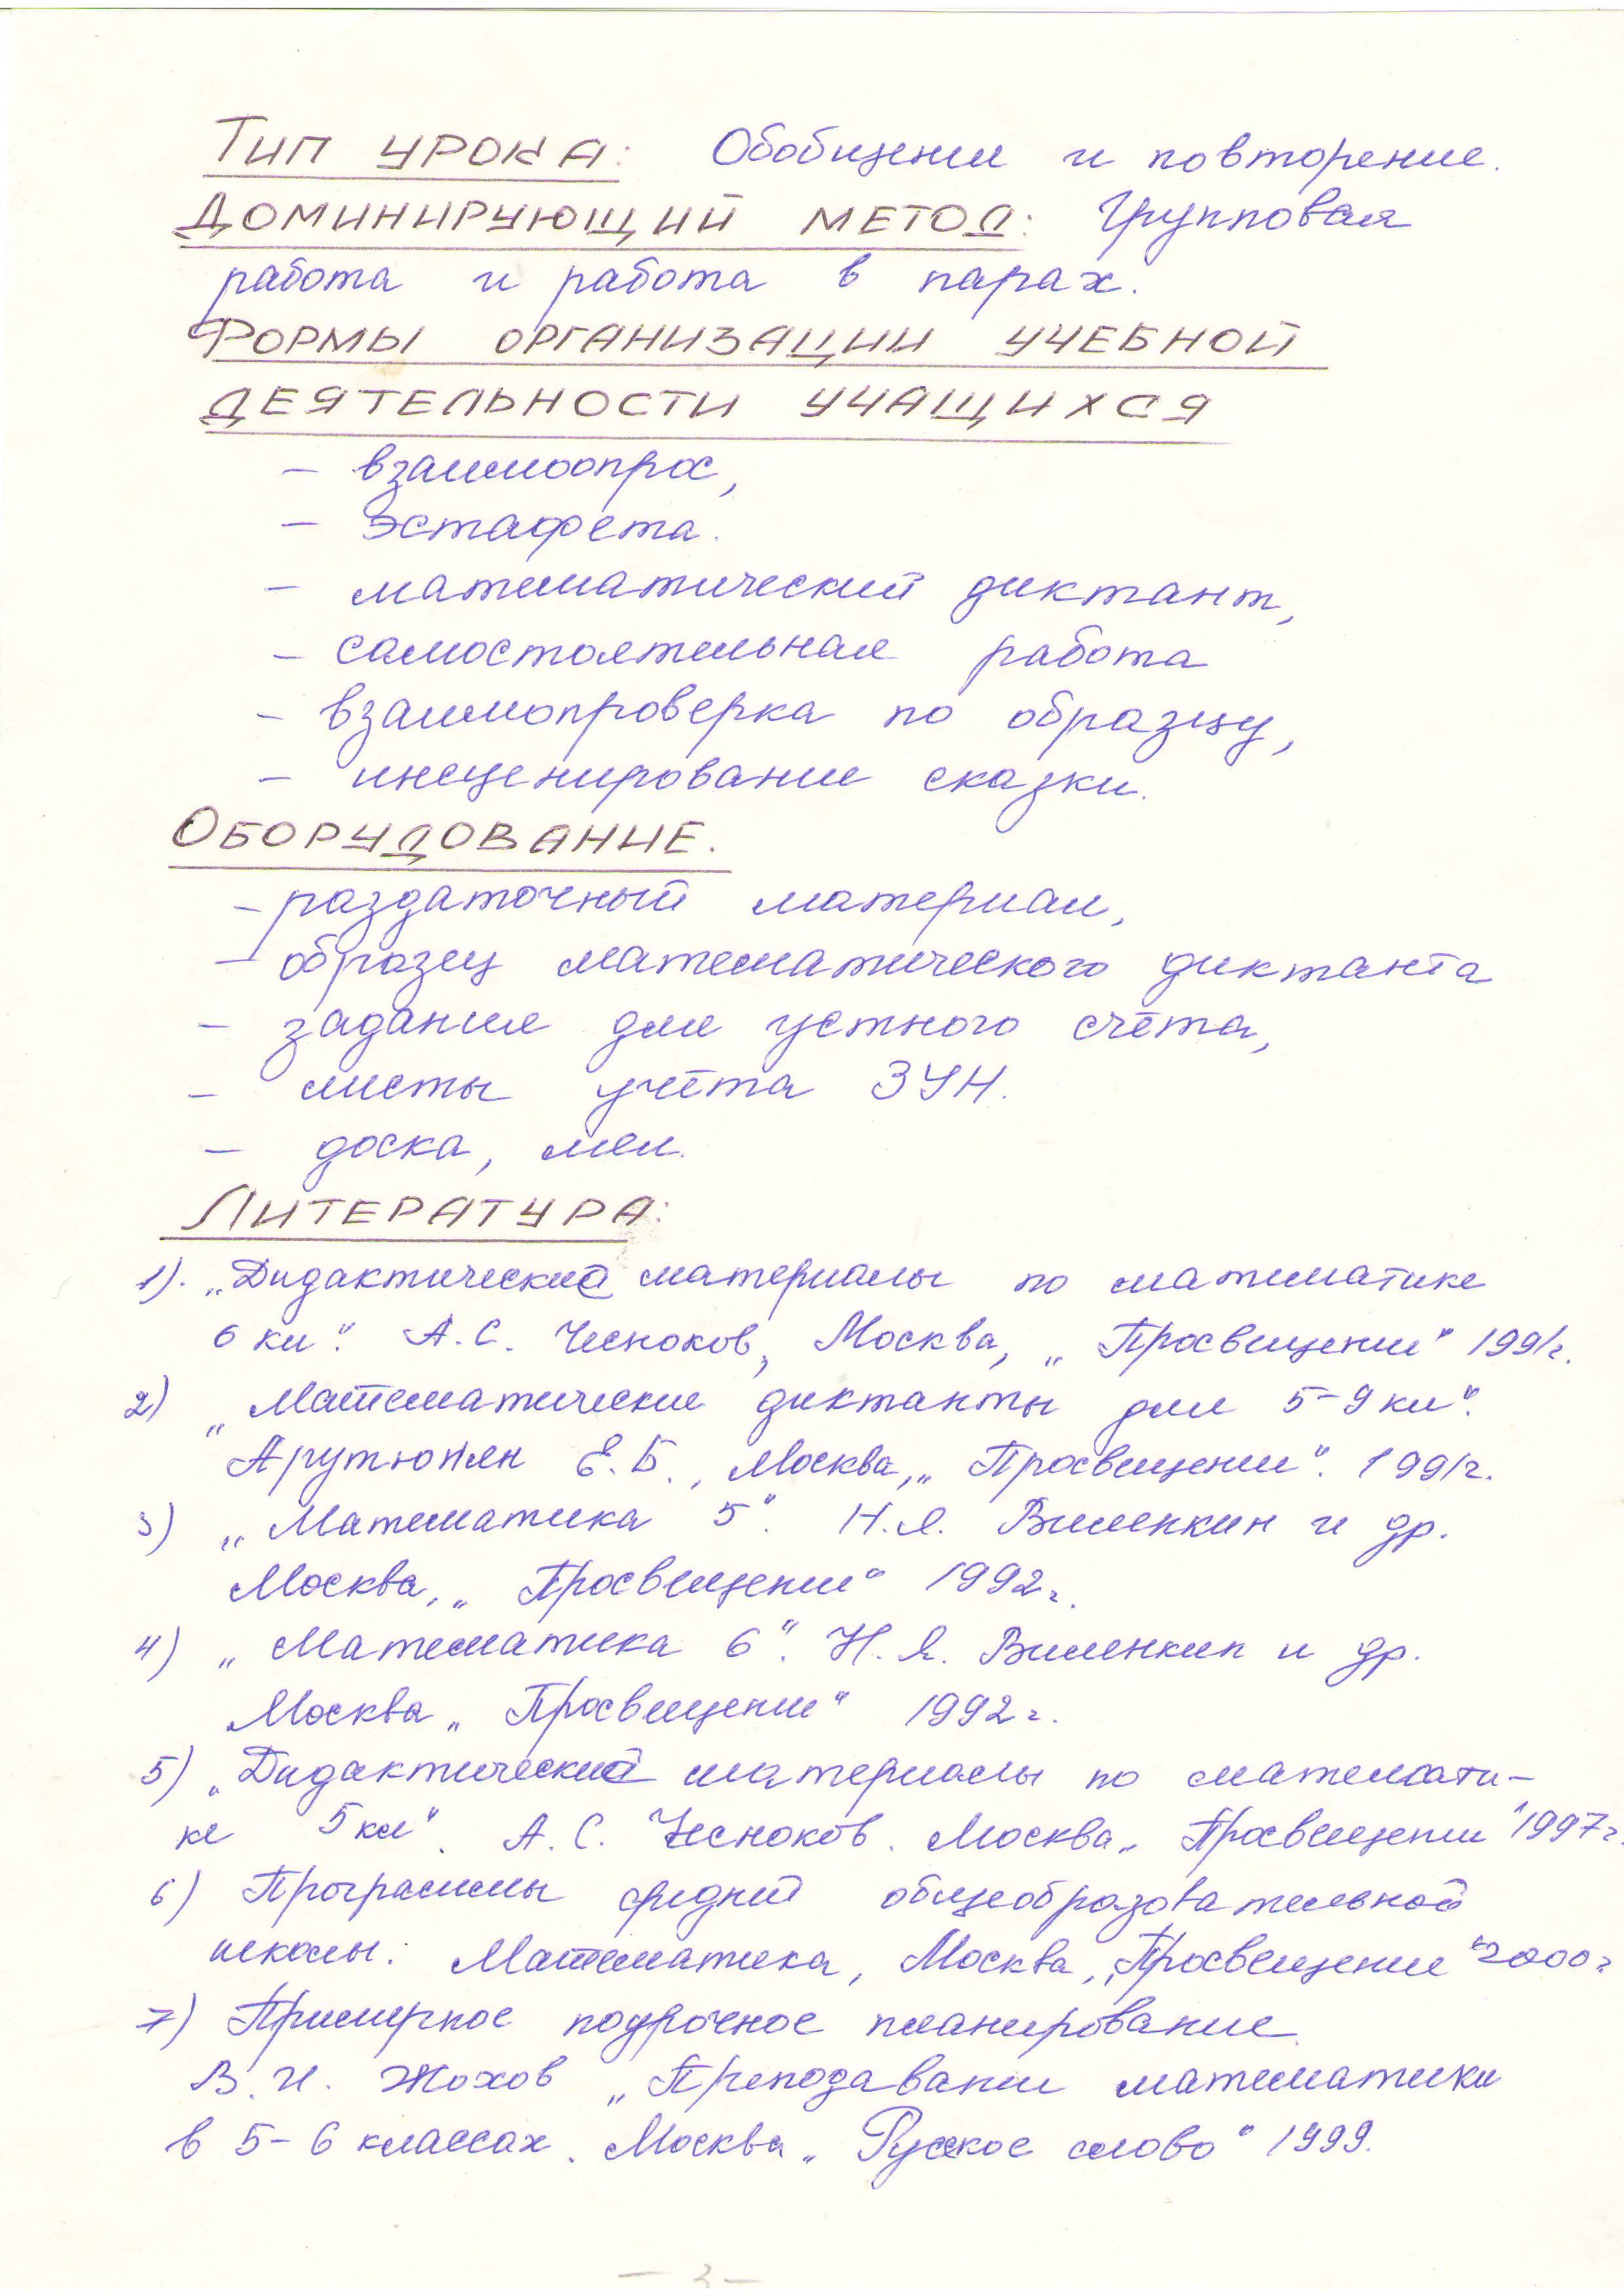 Тип урока: Обобщение и повторение.
Доминирующий метод: Групповая
работа и работа в парах.
Формы организации учебной
деятельности учащихся
– взаимоопрос,
– эстафета.
– математический диктант,
– самостоятельная работа
– взаимопроверка по образцу,
– инсценирование сказки.
Оборудование.
– раздаточный материал,
– образец математического диктанта
– задания для устного счёта,
– листы учёта ЗУН.
– доска, мел.
Литература:
1). „Дидактические материалы по математике
6 кл“. А.С. Чесноков, Москва, „Просвещение“ 1991г.
2) „Математические диктанты для 5–9 кл“.
Арутюнян Е.Б., Москва, „Просвещение“. 1991г.
3) „Математика 5“. Н.Я. Виленкин и др.
Москва, „Просвещение“ 1992г.
4) „Математика 6“. Н.Я. Виленкин и др.
Москва „Просвещение“ 1992г.
5) „Дидактический материалы по математи–
ке 5кл“. А.С. Чесноков. Москва „Просвещение“ 1997г.
6) Программы средней общеобразовательной
школы. Математика, Москва, „Просвещение“ 2000г
7) Примерное поурочное планирование.
В.И. Жохов „Преподавание математики
в 5–6 классах. Москва „Русское слово“ 1999.
– 2 –